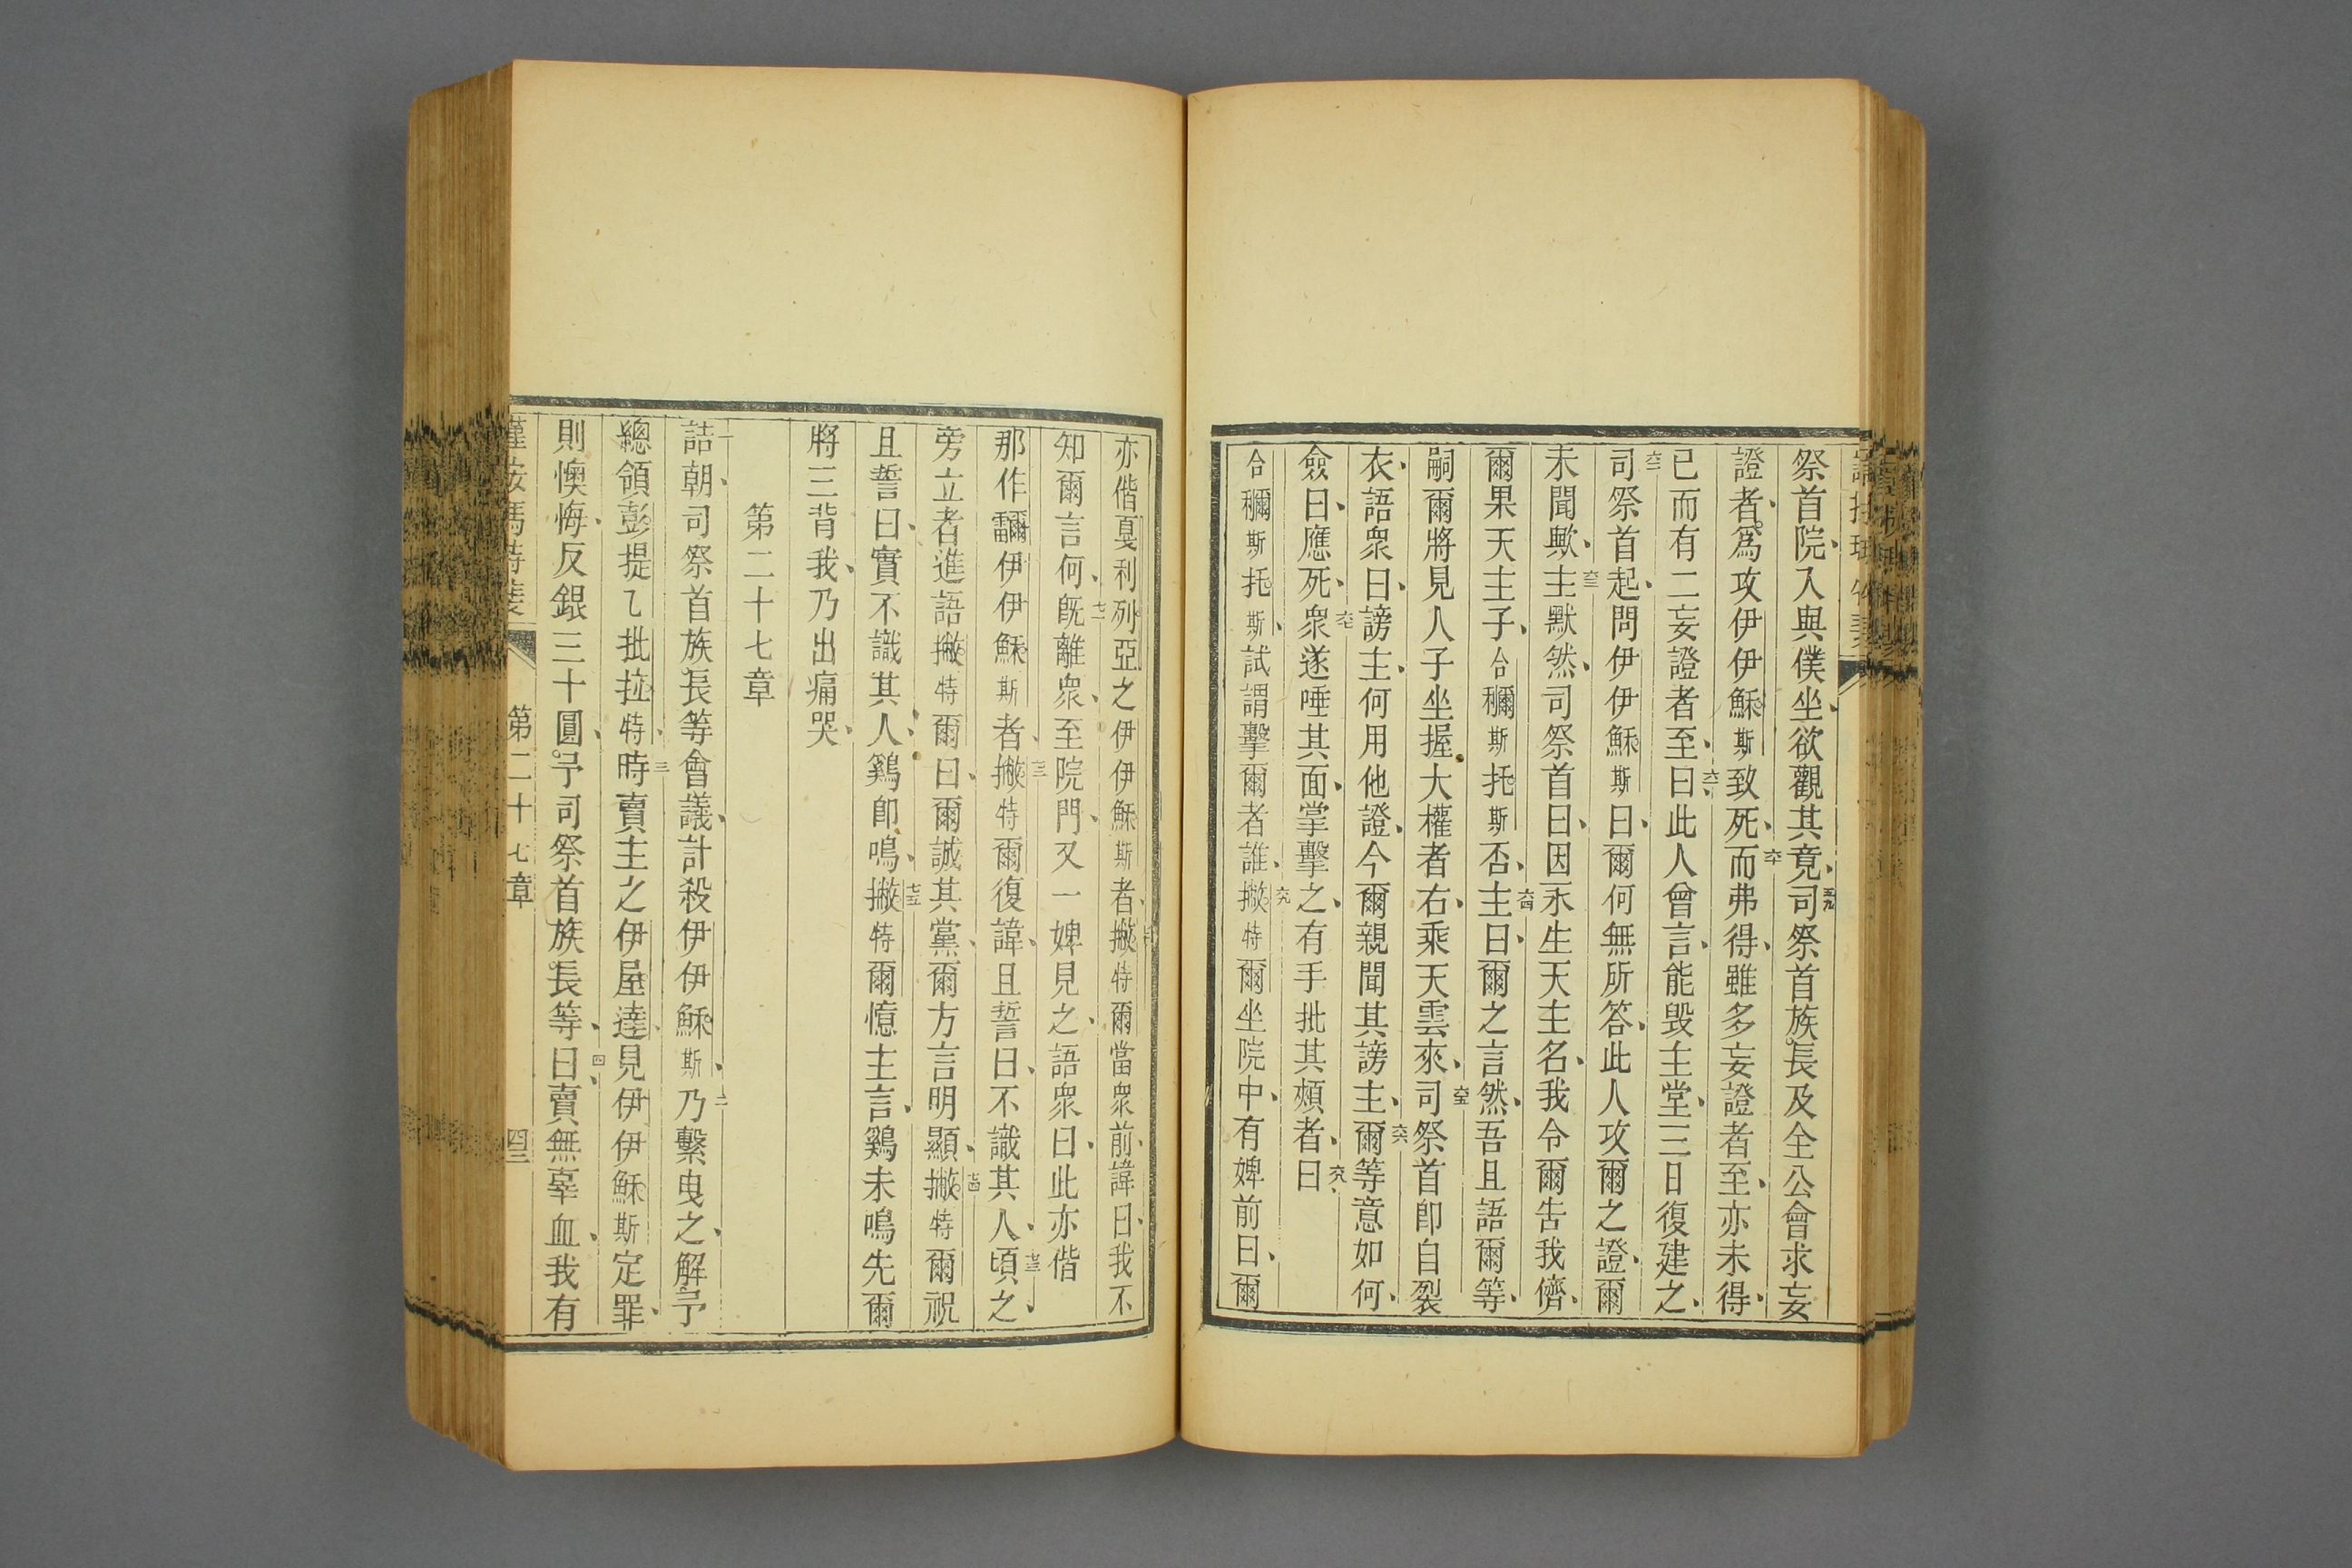 祭首院、入與僕坐、欲觀其竟、五九司祭首族長及全公會求妄
證者、爲攻伊伊穌斯致死、六十而弗得、雖多妄證者至、亦未得、
已而有二妄證者至、六一曰此人曾言、能毀主堂、三日復建之、
六二司祭首起、問伊伊穌斯曰、爾何無所答、此人攻爾之證、爾
未聞歟、六三主默然、司祭首曰、因永生天主名、我令爾吿我儕、
爾果天主子、合穪斯托斯否、六四主曰、爾之言然、吾且語爾等、
嗣爾將見人子坐握大權者右、乘天雲來、六五司祭首卽自裂
衣、語衆曰、謗主、何用他證、今爾親聞其謗主、六六爾等意如何、
僉曰、應死、六七衆遂唾其面、掌擊之、有手批其頰者、六八曰
合穪斯托斯、試謂擊爾者誰、六九撇特爾坐院中、有婢前曰、爾
亦偕戛利列亞之伊伊穌斯者、七十撇特爾當衆前、諱曰、我不
知爾言何、七一旣離衆、至院門、又一婢見之、語衆曰、此亦偕
那作爾伊伊穌斯者、七二撇特爾復諱、且誓曰、不識其人、七三頃之
旁立者進語撇特爾曰、爾誠其黨、爾方言明顯、七四撇特爾祝
且誓曰、實不識其人、鷄卽鳴、七五撇特爾憶主言、鷄未鳴先爾
將三背我、乃出痛哭、
第二十七章
一詰朝、司祭首族長等會議、計殺伊伊穌斯、二乃繫曳之、解予
總領彭提乙批拉特、三時賣主之伊屋達、見伊伊穌斯定罪、
則懊悔、反銀三十圓、予司祭首族長等、四曰、賣無辜血、我有
第二十七章
四三